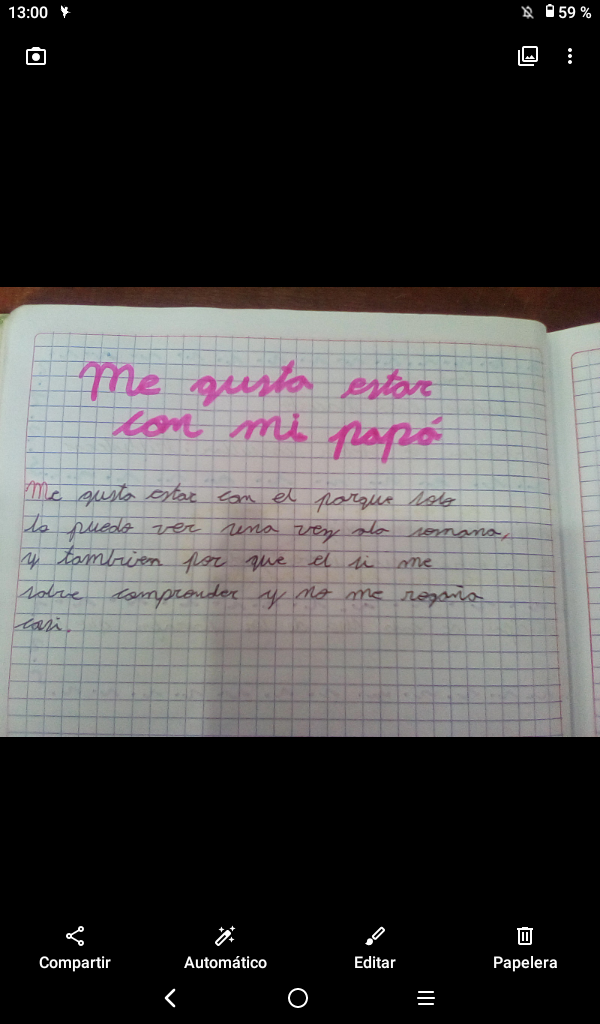 13:00
59 %
Me gusta estar
con mi papá
Me gusta estar con el porque solo
lo puedo ver una vez ala semana,
y tambien por que el si me
sabe comprender y no me regaña
casi.
Compartir
Automático
Editar
Papelera